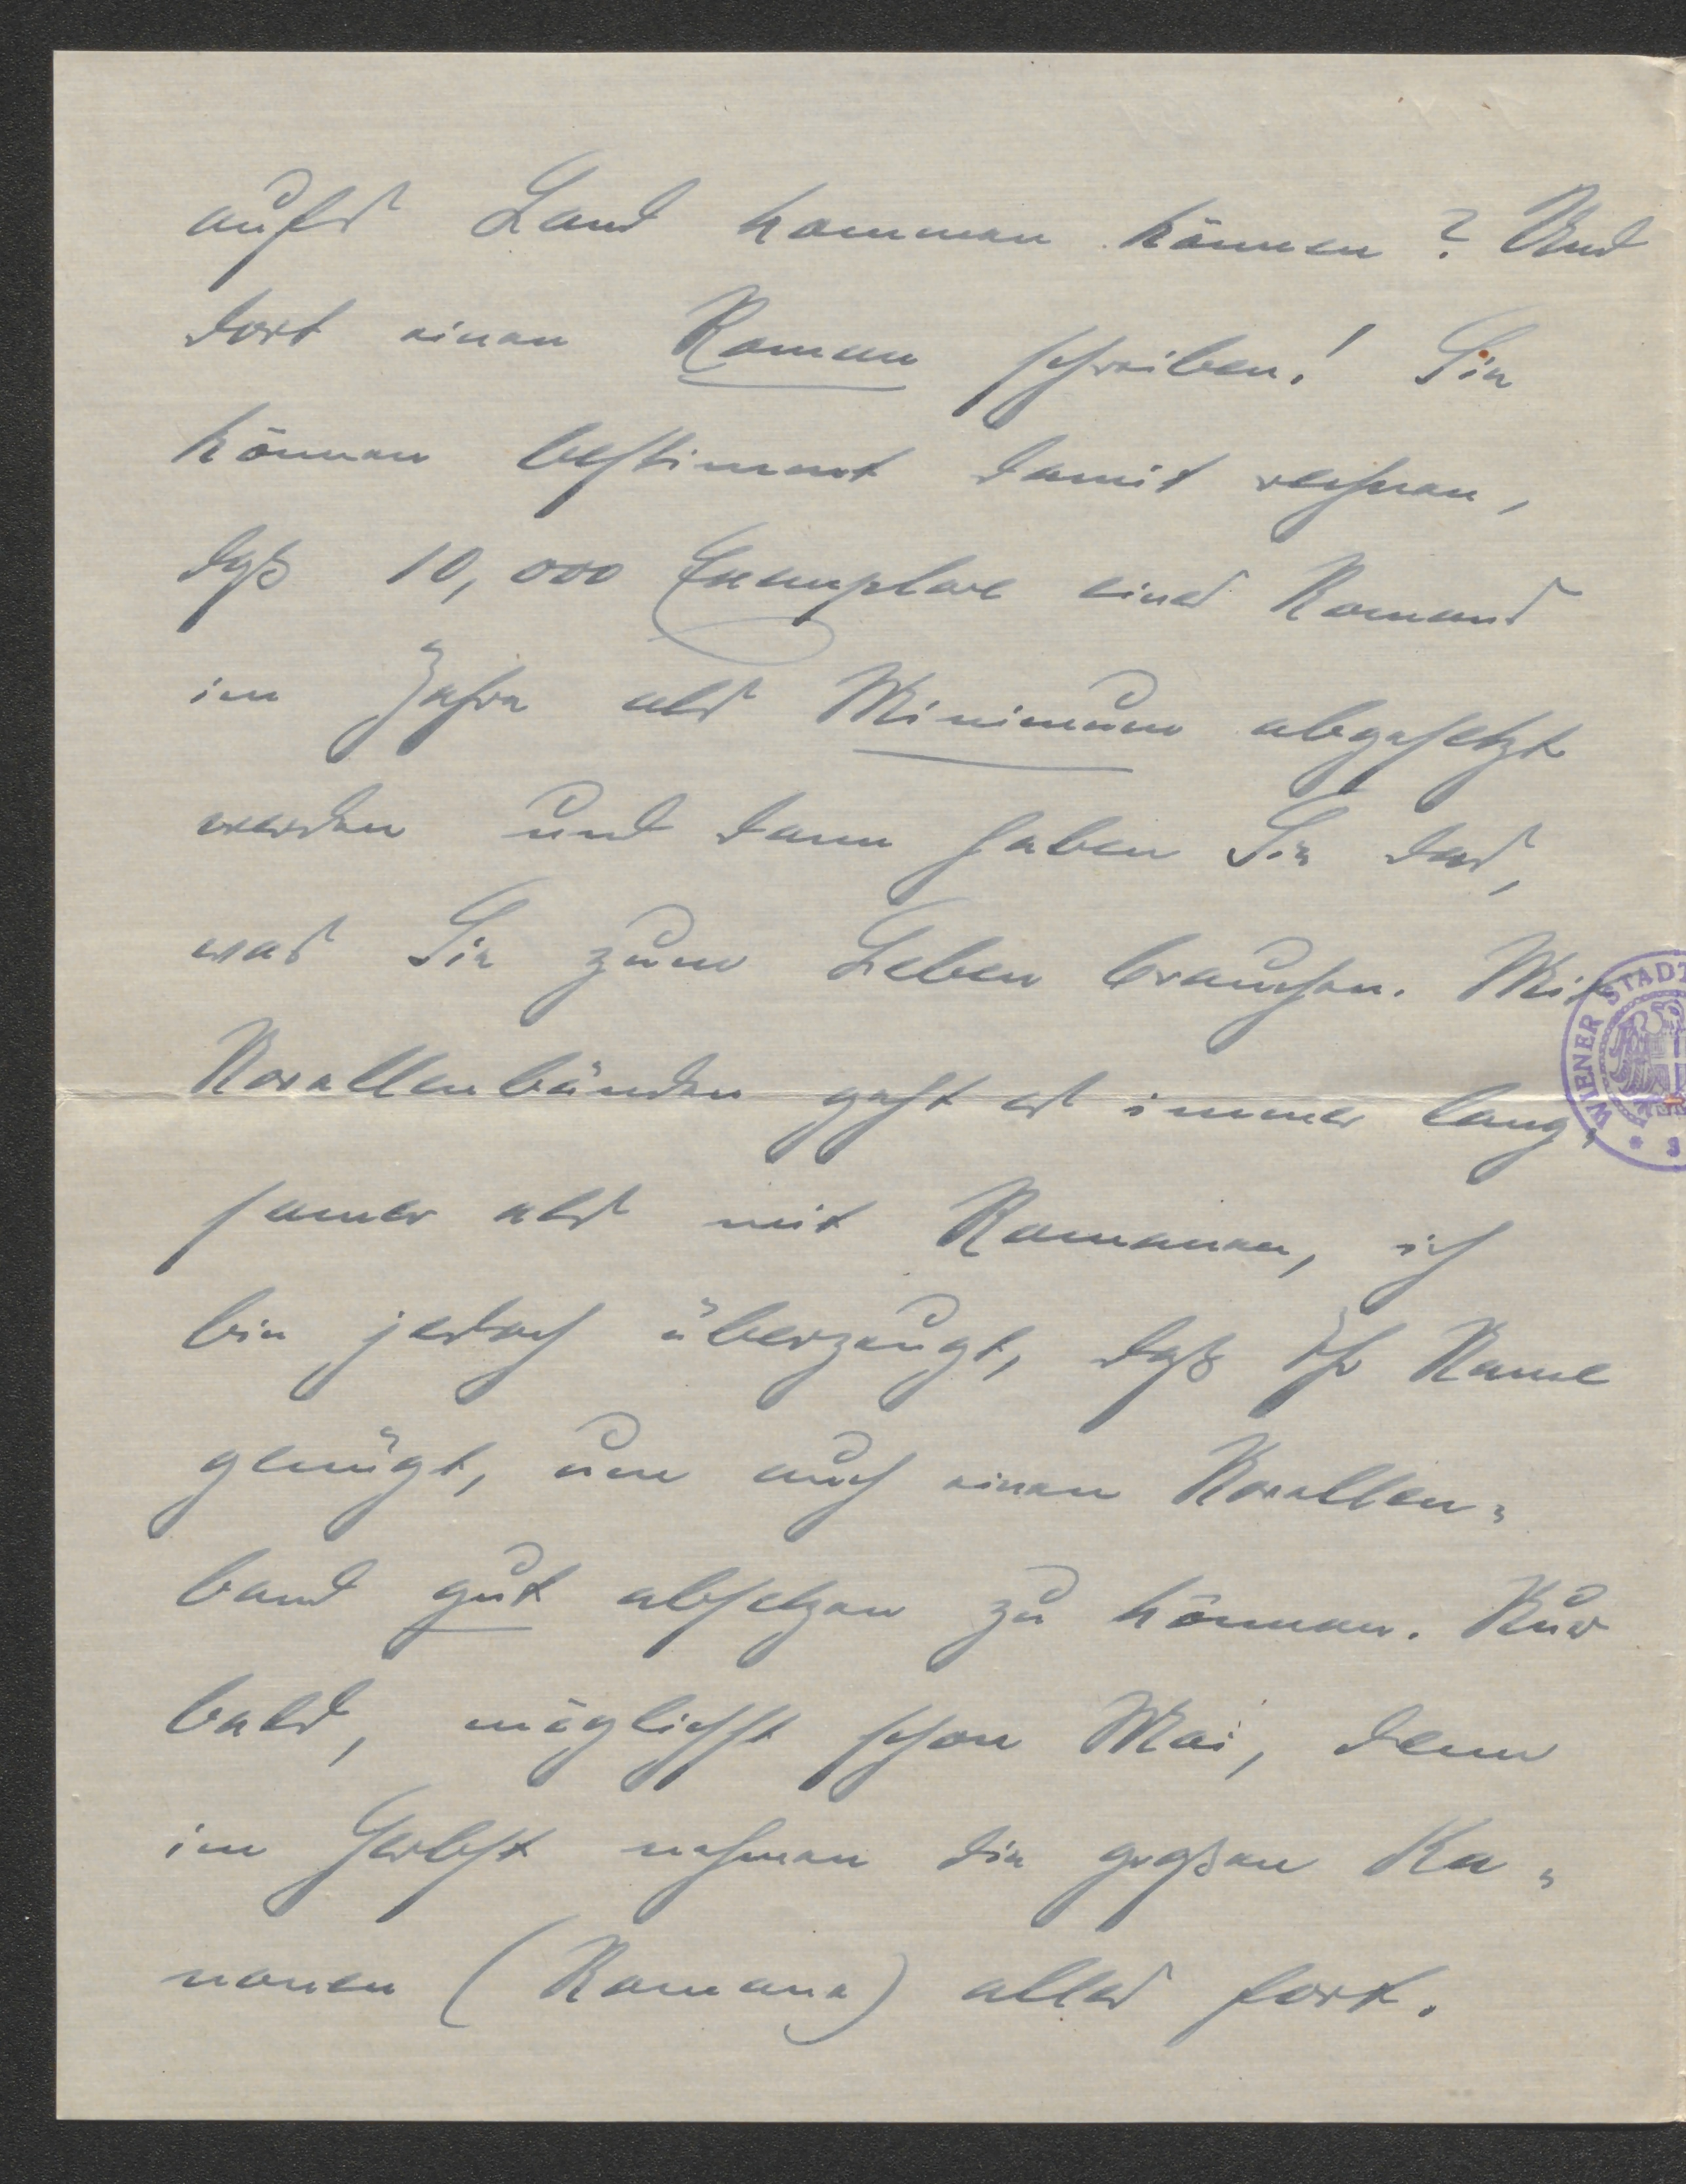 aufs Land kommen können? Und
dort einen Roman schreiben! Sie
können bestimmt damit rechnen,
daß 10,000 Exemplare eines Romans
im Jahre als Minimum abgesetzt
werden und dann haben Sie das,
was Sie zum Leben brauchen. Mit
Novellenbänden geht es immer lang-
samer als mit Romanen, ich
bin jedoch überzeugt, daß Ihr Name
genügt, um auch einen Novellen-
band gut absetzen zu können. Nur
bald, möglichst schon Mai, denn
im Herbst nehmen die großen Ka-
nonen (Romane) alles fort.
WIENER STADT